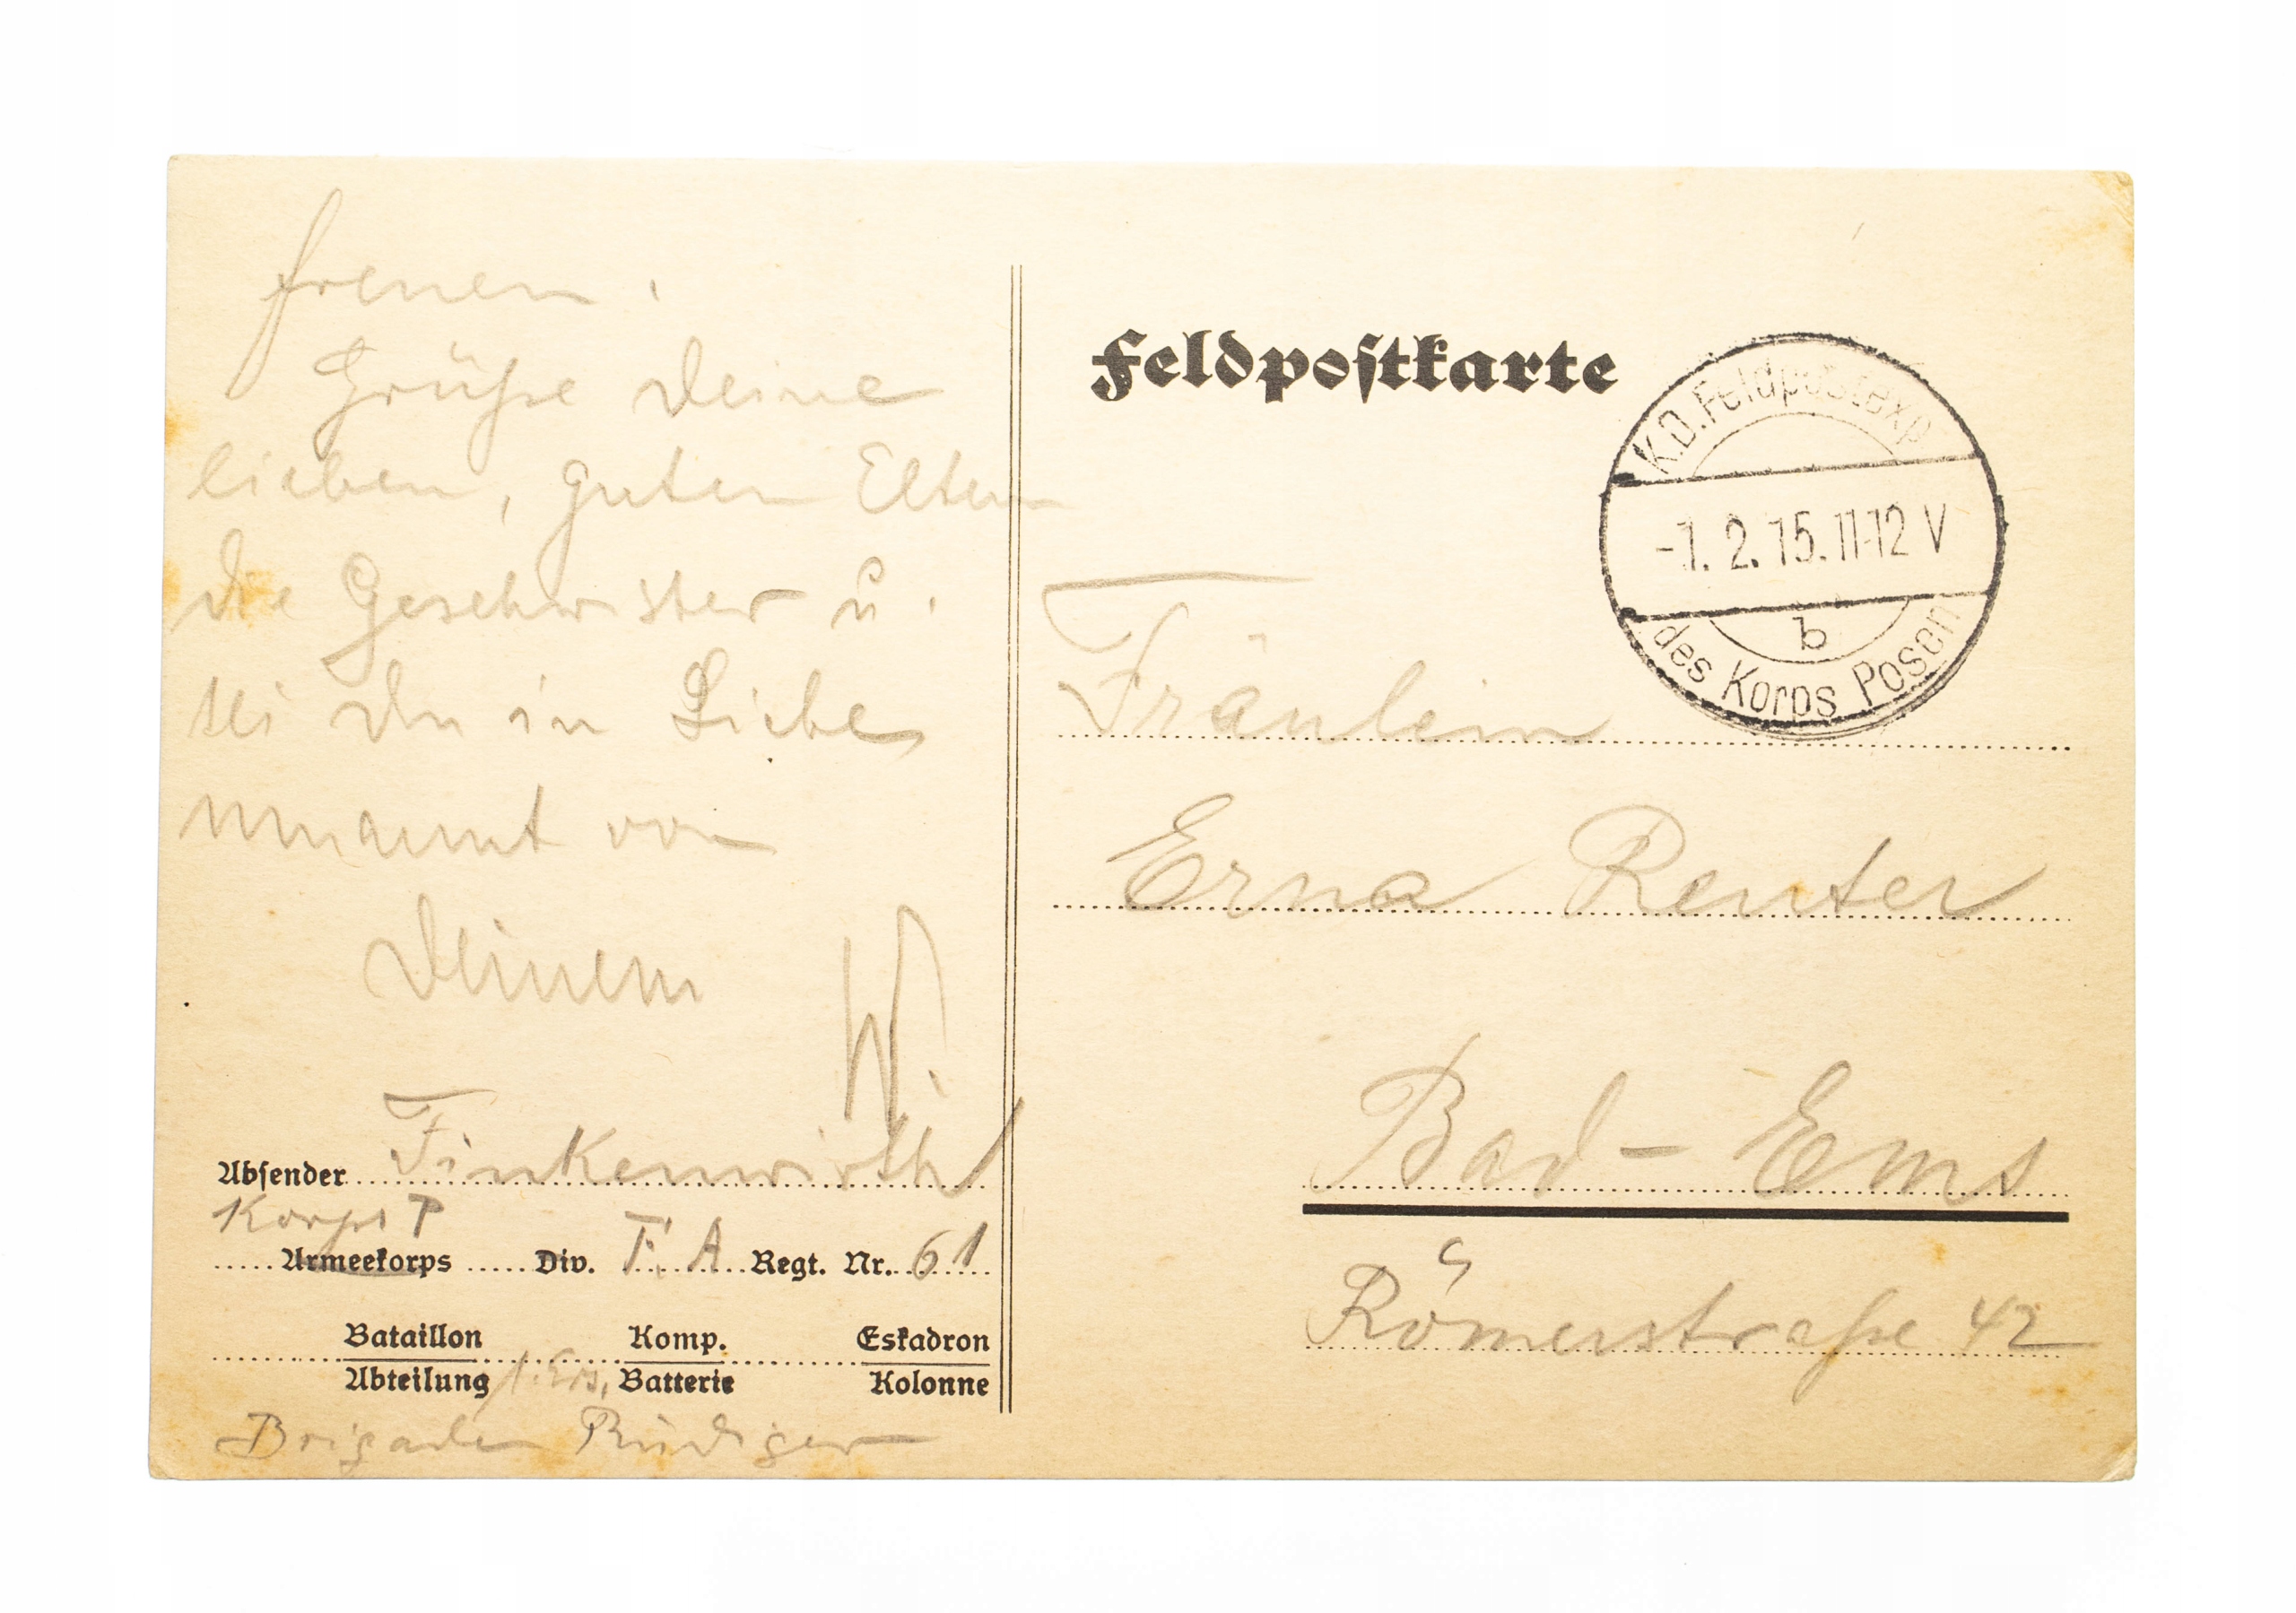 freuen.
Grüße deine
lieben, guten Eltern
die Geschwister u.
sei du in Liebe
umarmt von
Deinem
W.
Absender Finkenwirth
Korps P
Armeekorps Div. F. A Regt. Nr. 61
Bataillon Komp. Eskadron
Abteilung 1. Ers. Batterie Kolonne
Brigade Rüdiger
Feldpostkarte
K.D. Feldpostexp.
-1. 2. 15. 11-12 V
b
des Korps Posen
Fräulein
Erna Reuter
Bad-Ems
Römerstraße 42